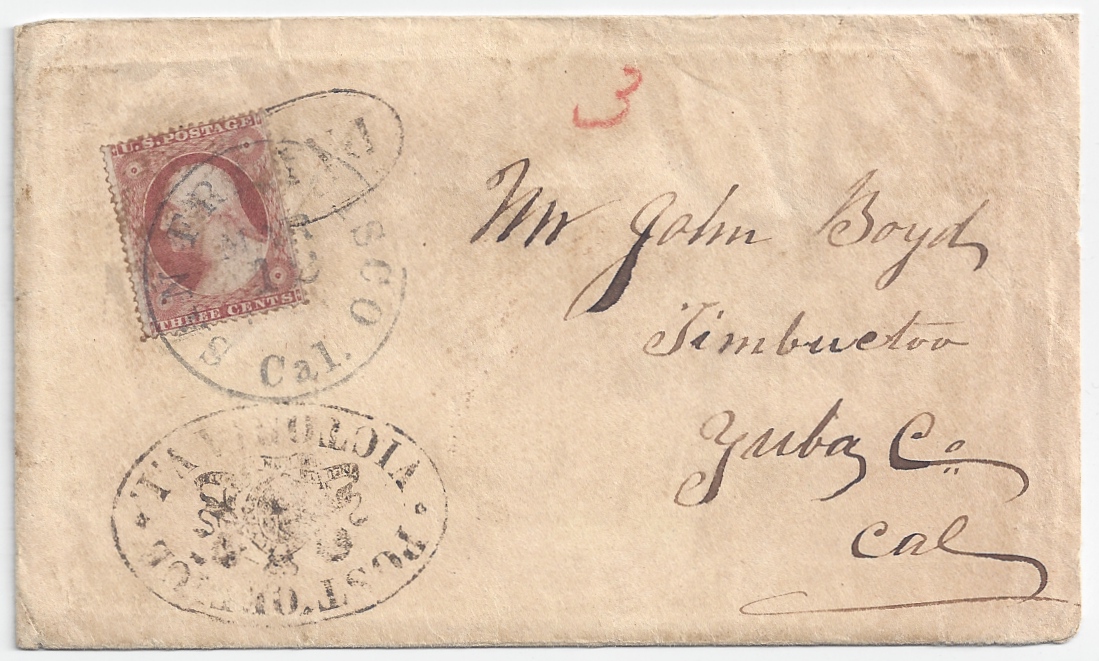 3
U.S. POSTAGE
THREE CENTS
PAID
SAN FRANCISCO
Cal.
Mr John Boyd
Timbuctoo
Yuba Co
Cal
POST OFFICE
VICTORIA